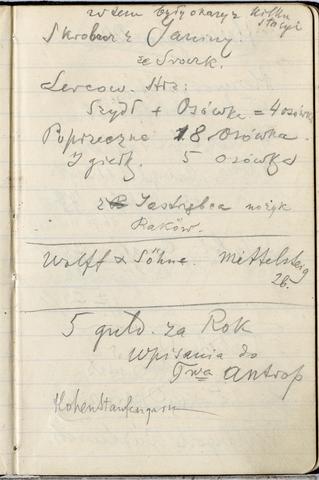 z tem były okazy z kilku
stacyi
Skrobacz z Janiny.
ze Sroczk.
Lercow. Hrz:
Szydł + Osówka = 4 osówk
Poprzeczne 18. Osówka.
Igiełk. 5 Osówka
z Jastrzębca nożyk
Raków.
Wolff & Söhne. Mittelsteig
26.
5 guld. za Rok
Wpisania do
Twa Antrop
Hohenstaufengasse